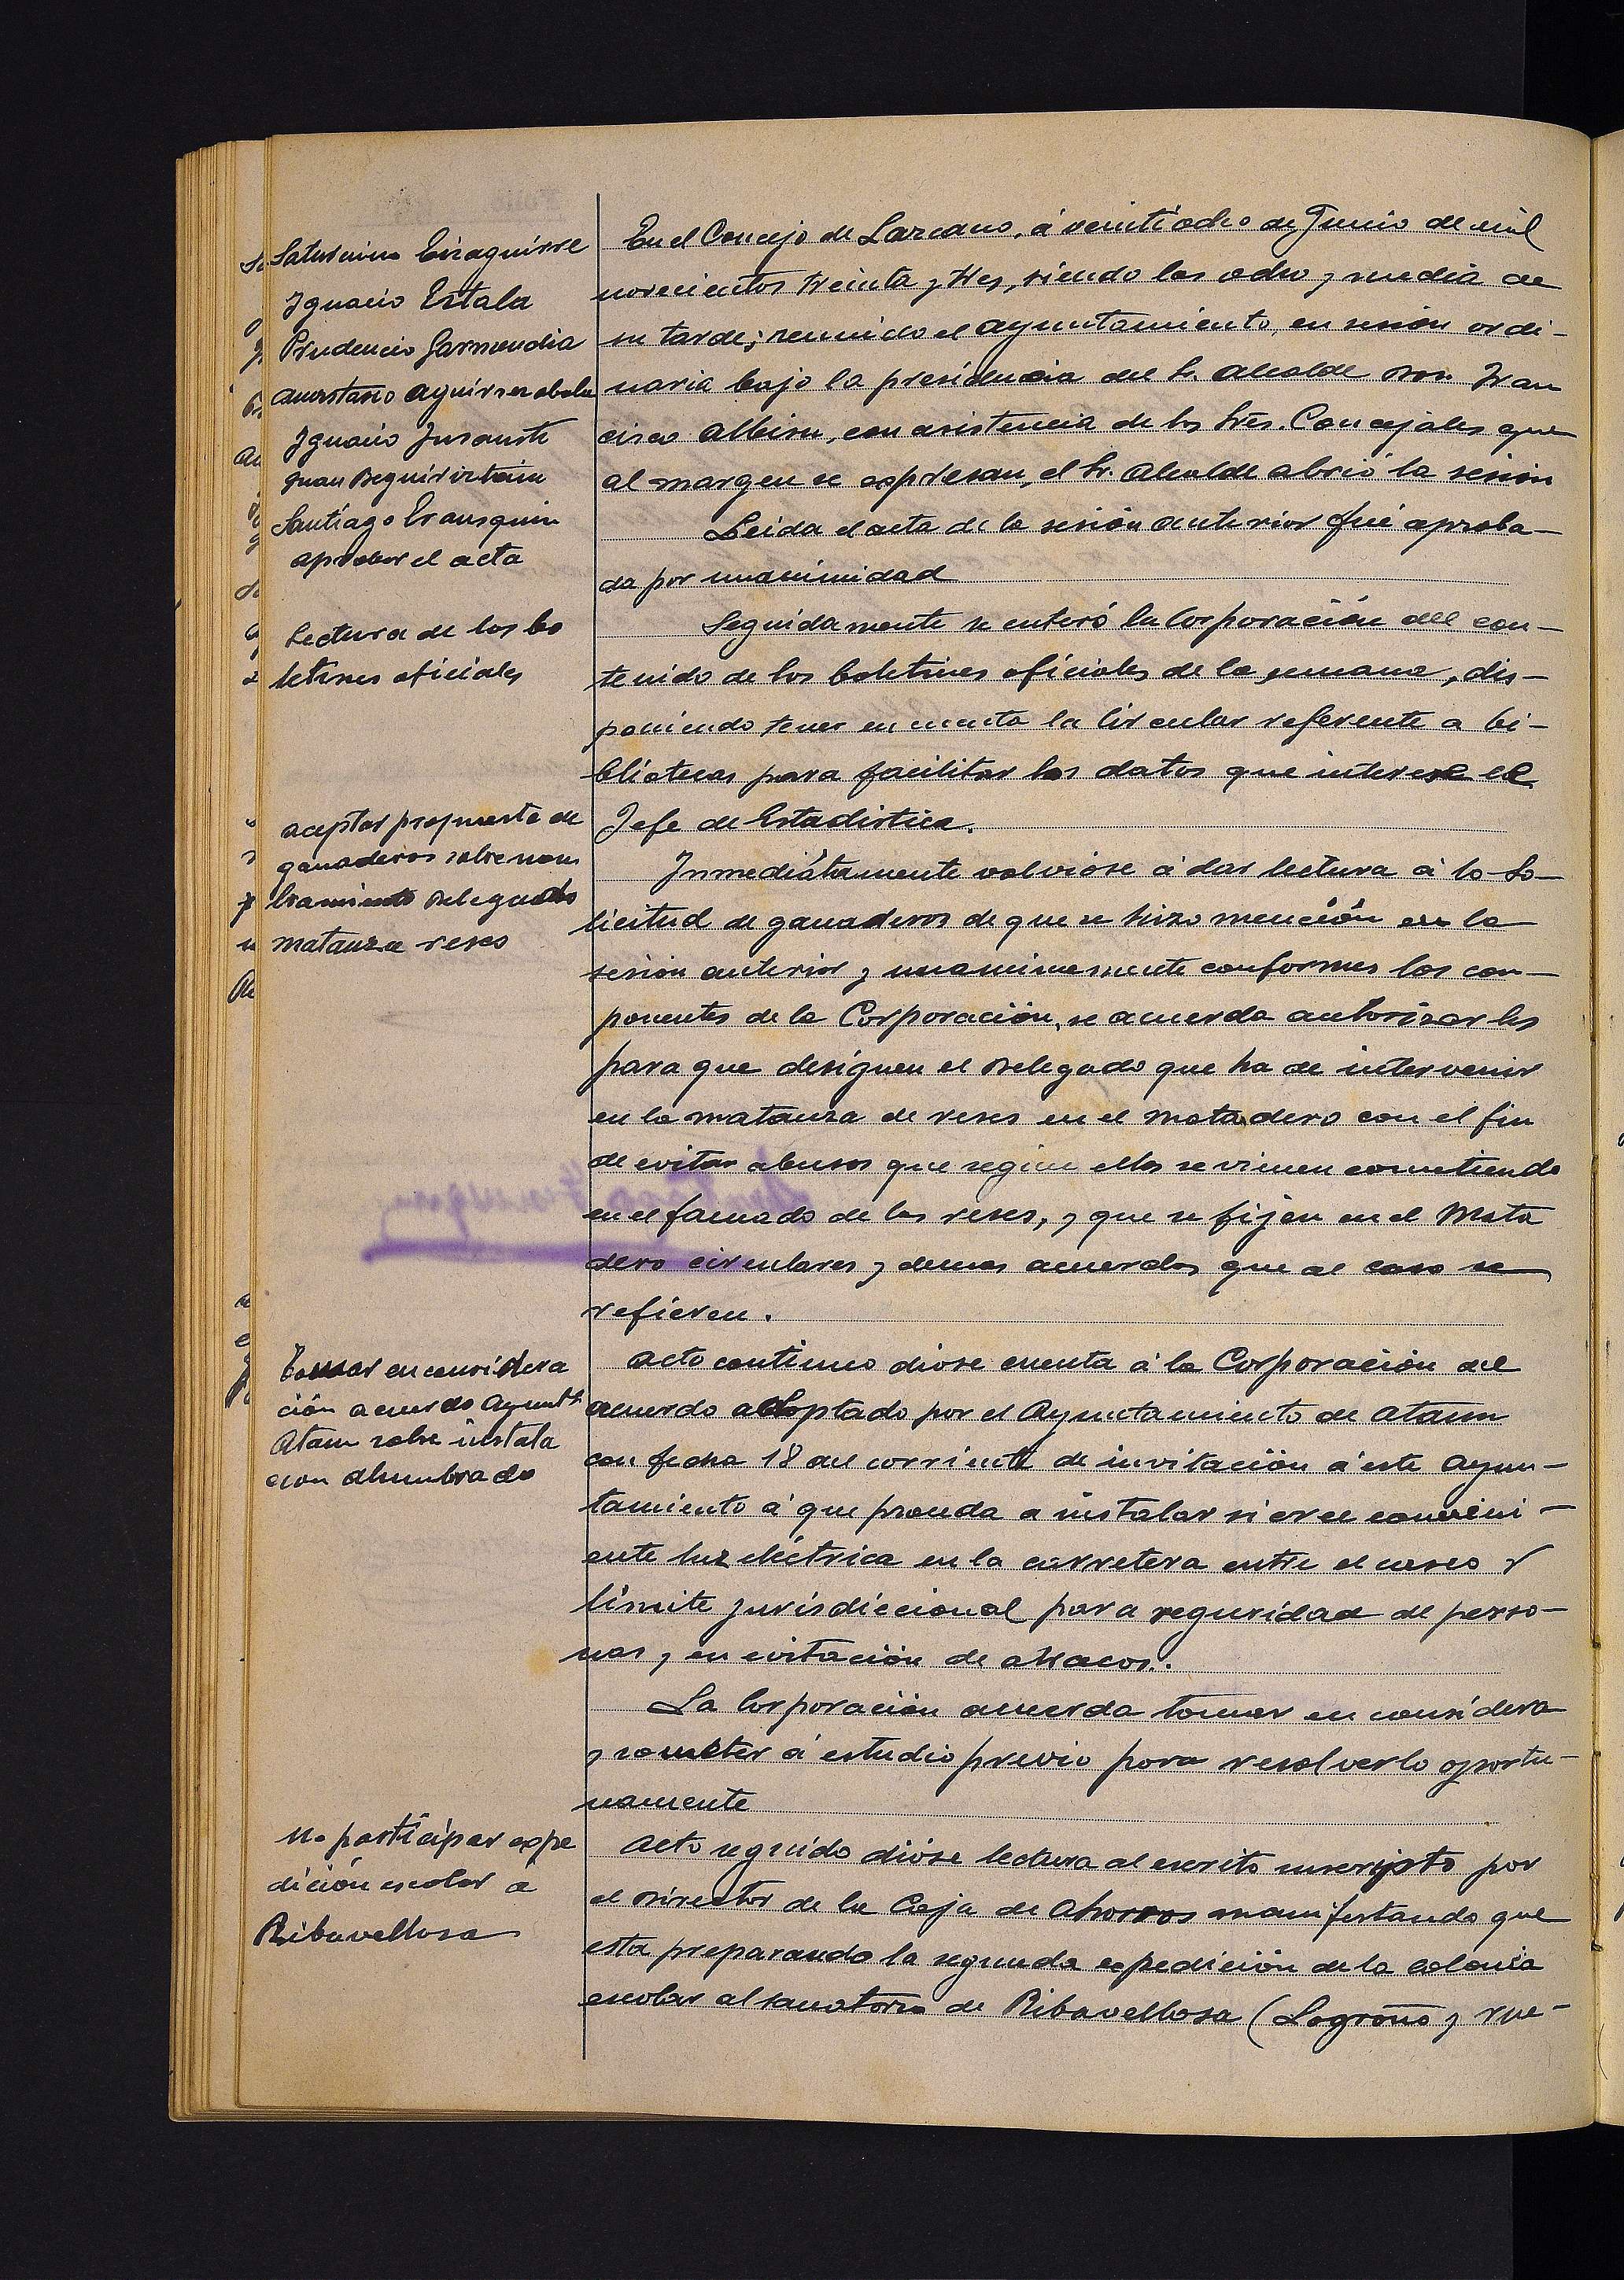 Saturnino Eizaguirre
Ignacio Estala
Prudencio Garmendia
Anastasio Aguirrezabala
Ignacio Insausti
Juan Beguiristain
Santiago Erausquin
aprobar el acta
En el Concejo de Lazcano, á veintiocho de Junio de mil
novecientos treinta y tres, siendo las ocho y media de
su tarde; reunido el ayuntamiento, en sesión ordi-
naria bajo la presidencia del Sr. Alcalde Don Fran
cisco Albisu, con asistencia de los Sres. Concejales que
al margen se expresan, el Sr. Alcalde abrió la sesión
Leida el acta de la sesión anterior fué aproba-
da por unanimidad
Lectura de los bo
letines oficiales
Seguidamente se enteró la Corporación del con-
tenido de los boletines oficiales de la semana, dis-
poniendo tener en cuenta la Circular referente a bi-
bliotecas para facilitar los datos que interese el
Jefe de Estadistica.
aceptar propuesta de
ganaderos sobre nom
bramiento Delegado
matanza reses
Inmediátamente volvióse á dar lectura á la So-
licitud de ganaderos de que se hizo mención en la
sesión anterior y unanimemente conformes los com-
ponentes de la Corporación, se acuerda autorizarles
para que designen el Delegado que ha de intervenir
en la matanza de reses en el matadero con el fin
de evitar abusos que según ellos se vienen cometiendo
en el faenado de las reses, y que se fijen en el Mata
dero circulares y demas acuerdos que al caso se
refieren.
Tomar en considera
ción acuerdo Ayuntto
Ataun sobre instala
cion alumbrado
Acto continuo dióse cuenta á la Corporación del
acuerdo adoptado por el Ayuntamiento de Ataun
con fecha 18 del corriente de invitación á este Ayun-
tamiento á que proceda a instalar si cree conveni-
ente luz eléctrica en la carretera entre el casco y
límite jurisdiccional para seguridad de perso-
nas y en evitación de atracos.
La Corporación acuerda tomar en considera
y someter á estudio previo para resolverlo oportu-
namente
No participar expe
dición escolar á
Ribavellosa
Acto seguido dióse lectura al escrito suscripto por
el Director de la Caja de Ahorros manifestando que
esta preparando la segunda expedición de la colonia
escolar al sanatorio de Ribavellosa (Logroño y rue-